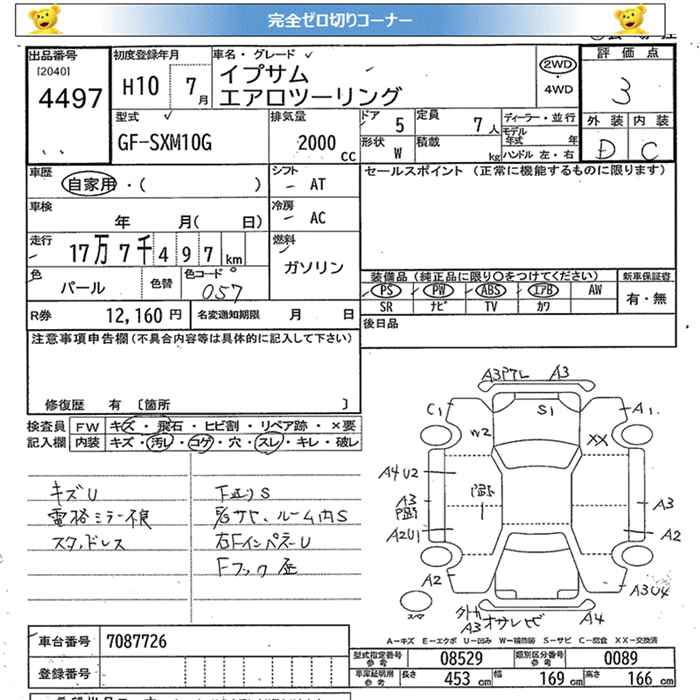 完全ゼロ切りコーナー
出品番号 初度登録年月 車名・グレード
[2040]
4497
H10 7月
イプサム
エアロツーリング
2WD
・
4WD
評価点
3
型式 排気量 ドア 5 定員 7人 ディーラー・並行
GF-SXM10G 2000cc
形状 W 積載 kg
モデル年式 年
ハンドル 左・右
外装 内装
D C
車歴 自家用・( )
シフト AT
セールスポイント (正常に機能するものに限ります)
車検 年 月( 日)
冷房 AC
走行 17万7千497km
燃料 ガソリン
色 パール 色替 色コード 057
装備品(純正品に限り○をつけてください) 新車保証書
PS PW ABS エアB AW 有・無
SR ナビ TV カワ
R券 12,160円 名変通知期限 月 日
後日品
注意事項申告欄(不具合内容等は具体的に記入して下さい)
修復歴 有 [箇所 ]
検査員 FW キズ・飛石・ヒビ割・リペア跡・×要
記入欄 内装 キズ・汚レ・コゲ・穴・スレ・キレ・破レ
キズU
電格ミラー不良
スタッドレス
下廻りS
ルーム内S
右FインパネーU
Fフック
A3 A3
C1 S1 A1
W2 XX
A4 U2
A3 A3
A2U1 A2
A2 A3U4
スペア
A3 A4
A-キズ E-エクボ U-凹み W-補修跡 S-サビ C-腐食 XX-交換済
車台番号 7087726
登録番号
型式指定番号 参考 08529 類別区分番号 参考 0089
車庫証明用 参考 長さ 453 cm 幅 169 cm 高さ 166 cm